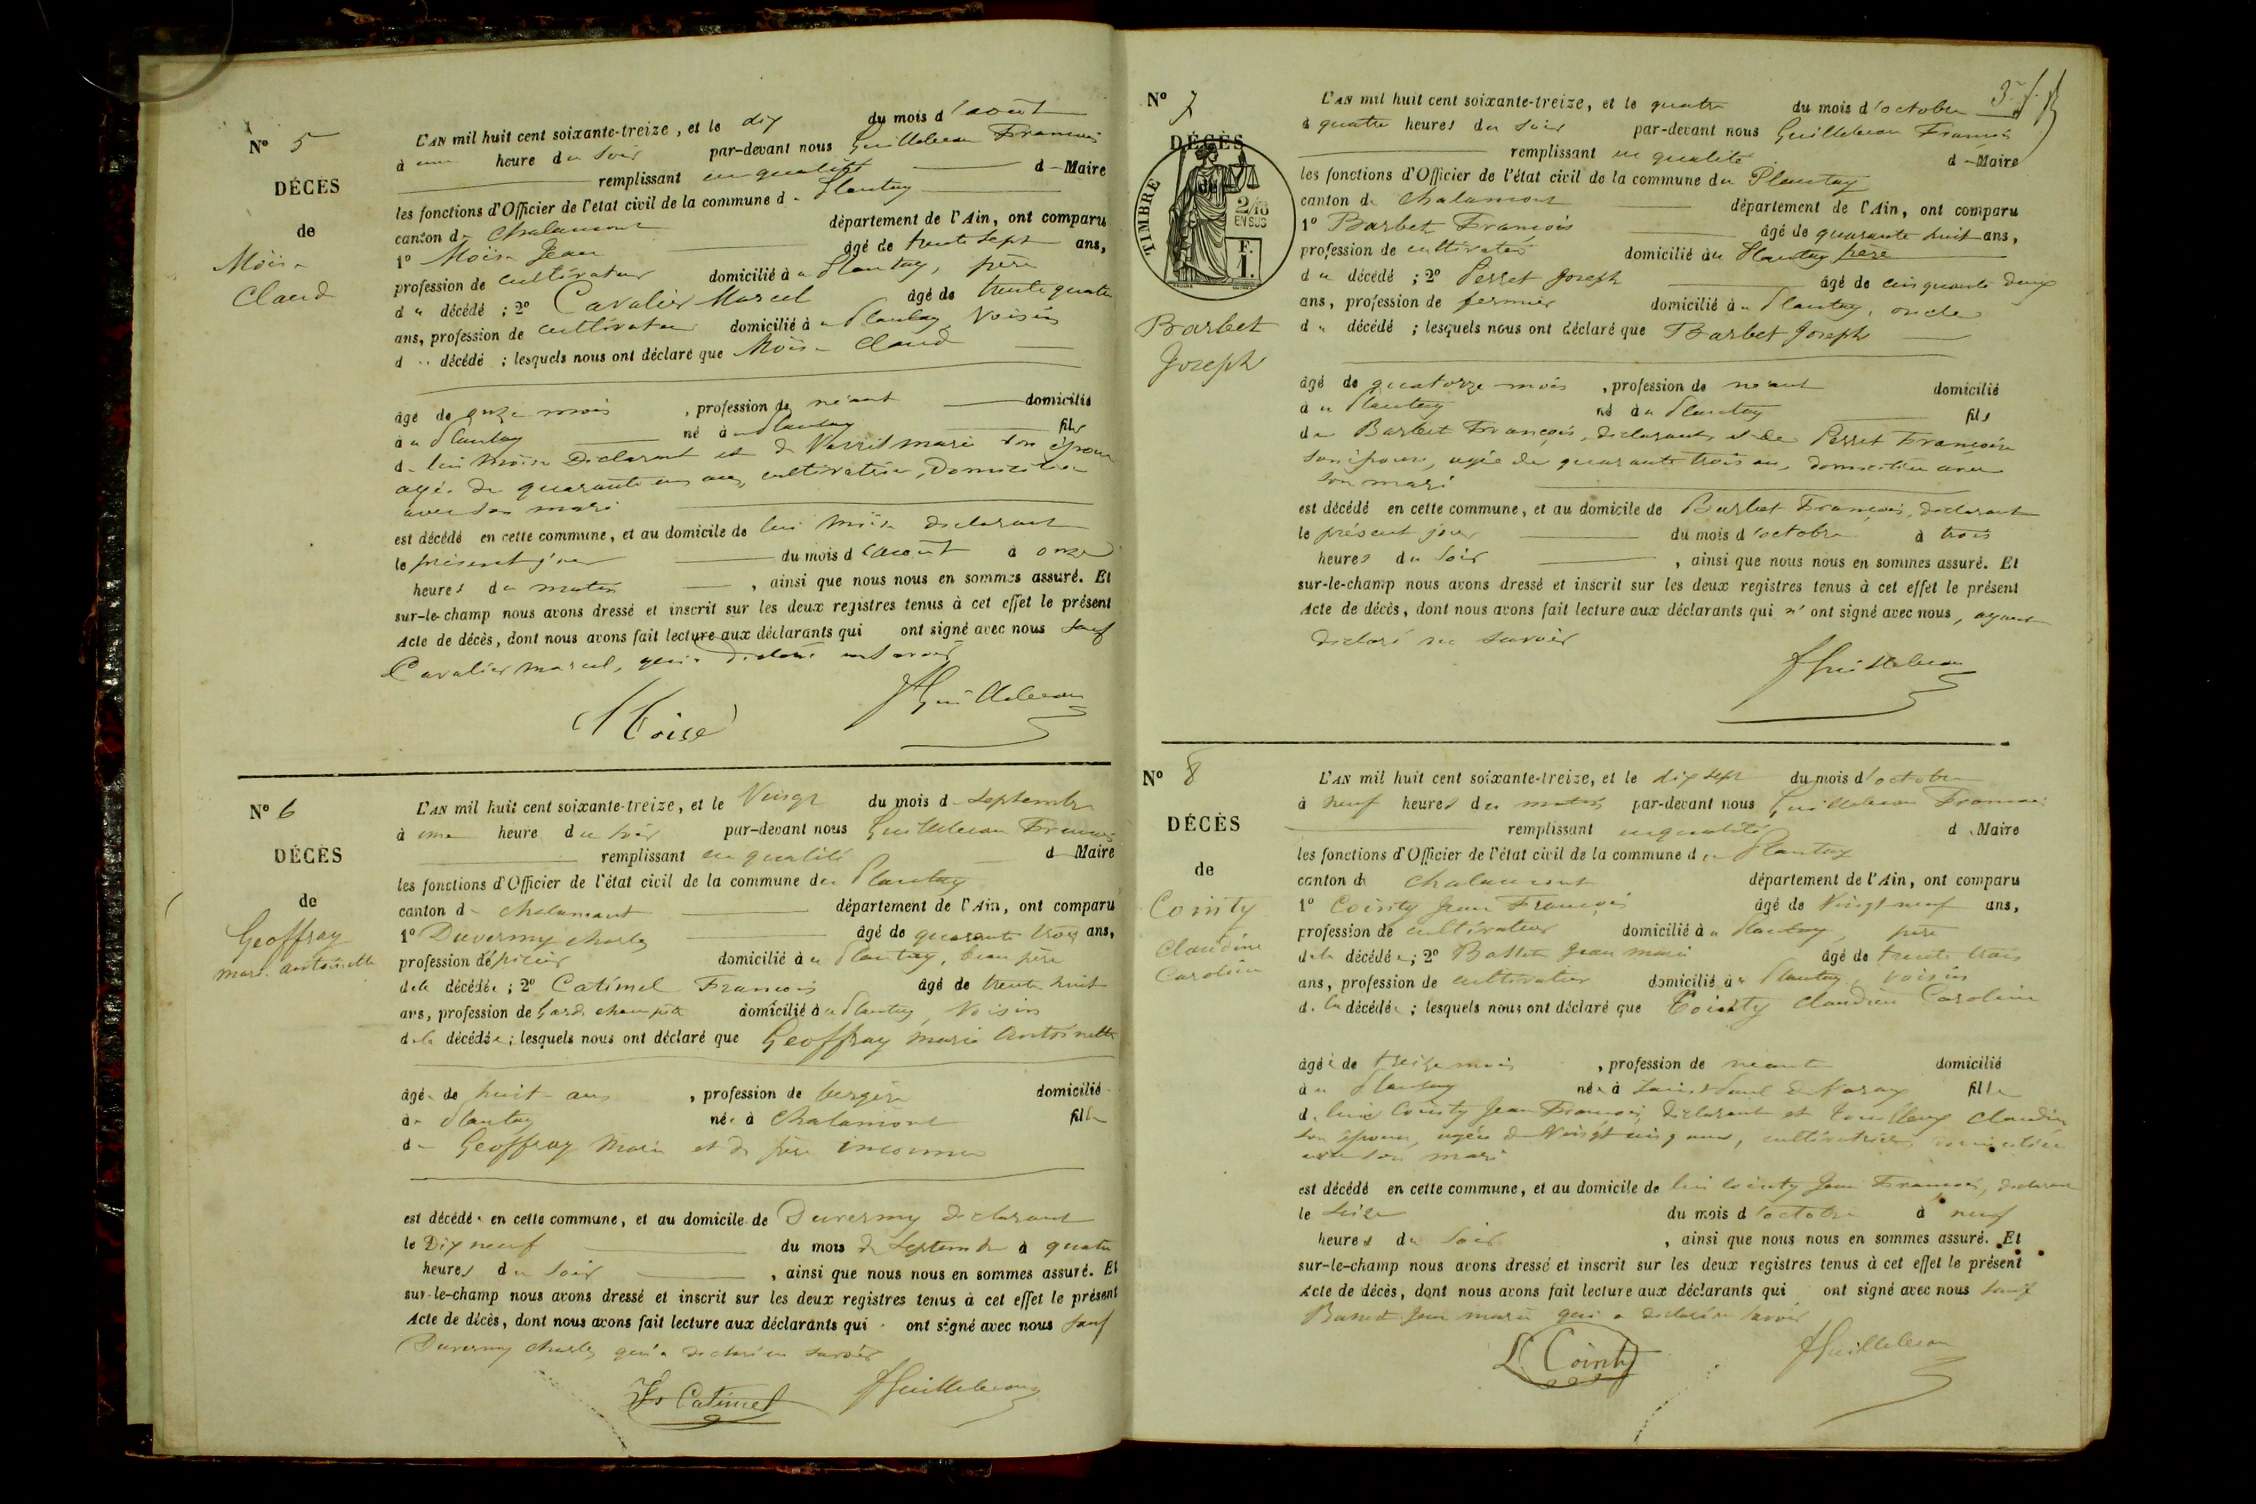 N° 5
DÉCÈS
de
Moïse
Claud
L'AN mil huit cent soixante-treize, et le dix du mois d'août
à une heure du soir par-devant nous Guillebeau François
remplissant en qualité d Maire
les fonctions d'Officier de l'état civil de la commune d Plantay
canton de Chalamont département de l'Ain, ont comparu
1° Moïse Jean âgé de trente sept ans,
profession de cultivateur domicilié à u Plantay, père
du décédé ; 2° Cavalier Marcel âgé de trente quatre
ans, profession de cultivateur domicilié à u Plantay, voisin
du décédé ; lesquels nous ont déclaré que Moïse Claud
âgé de onze mois, profession de néant domicilié
à u Plantay né à u Plantay fils
de lui Moïse Déclarant et de marie son épouse
agée de quarante un ans, cultivatrice, Domiciliée
avec son mari
est décédé en cette commune, et au domicile de lui Moïse déclarant
le présent jour du mois d'août à onze
heures du matin, ainsi que nous nous en sommes assuré. Et
sur-le-champ nous avons dressé et inscrit sur les deux registres tenus à cet effet le présent
Acte de décès, dont nous avons fait lecture aux déclarants qui ont signé avec nous sauf
Cavalier Marcel, qui a déclaré ne savoir
Moïse FGuillebeau
N° 6
DÉCÈS
de
Geoffray
marie antoinette
L'AN mil huit cent soixante-treize, et le Vingt du mois de Septembre
à une heure du soir par-devant nous Guillebeau François
remplissant en qualité d Maire
les fonctions d'Officier de l'état civil de la commune du Plantay
canton de Chalamont département de l'Ain, ont comparu
1° Duvermy charles âgé de quarante trois ans,
profession dépicier domicilié à u Plantay, beau père
de la décédée ; 2° Catimel François âgé de trente huit
ans, profession de Garde champêtre domicilié à u Plantay, Voisin
de la décédée ; lesquels nous ont déclaré que Geoffray marie Antoinette
âgée de huit ans, profession de bergère domicilié
à u Plantay née à Chalamont fille
de Geoffray Marie et de père inconnu
est décédée en cette commune, et au domicile de Duvermy déclarant
le Dix neuf du mois de Septembre à quatre
heures du soir, ainsi que nous nous en sommes assuré. Et
sur-le-champ nous avons dressé et inscrit sur les deux registres tenus à cet effet le présent
Acte de décès, dont nous avons fait lecture aux déclarants qui ont signé avec nous sauf
Duvermy charles qui a déclaré ne savoir
Fs Catimel FGuillebeau
3
N° 7
DÉCÈS
de
TIMBRE
2/10
EN SUS
F.
1.
Barbet
Joseph
L'AN mil huit cent soixante-treize, et le quatre du mois d'octobre
à quatre heures du soir par-devant nous Guillebeau François
remplissant en qualité d Maire
les fonctions d'Officier de l'état civil de la commune du Plantay
canton de Chalamont département de l'Ain, ont comparu
1° Barbet François âgé de quarante huit ans,
profession de cultivateur domicilié à u Plantay père
du décédé ; 2° Perret Joseph âgé de cinquante deux
ans, profession de fermier domicilié à u Plantay, oncle
du décédé ; lesquels nous ont déclaré que Barbet Joseph
âgé de quatorze mois, profession de néant domicilié
à u Plantay né à u Plantay fils
de Barbet François, déclarant et de Perret Françoise
son épouse, agée de quarante trois ans, domiciliée avec
son mari
est décédé en cette commune, et au domicile de Barbet François, déclarant
le présent jour du mois d'octobre à trois
heures du soir, ainsi que nous nous en sommes assuré. Et
sur-le-champ nous avons dressé et inscrit sur les deux registres tenus à cet effet le présent
Acte de décès, dont nous avons fait lecture aux déclarants qui n'ont signé avec nous, ayant
déclaré ne savoir
FGuillebeau
N° 8
DÉCÈS
de
Cointy
Claudine
Caroline
L'AN mil huit cent soixante-treize, et le dix sept du mois d'octobre
à neuf heures du matin par-devant nous Guillebeau François
remplissant en qualité d Maire
les fonctions d'Officier de l'état civil de la commune du Plantay
canton de Chalamont département de l'Ain, ont comparu
1° Cointy Jean François âgé de Vingt neuf ans,
profession de cultivateur domicilié à u Plantay, père
de la décédée ; 2° Basset Jean marie âgé de trente trois
ans, profession de cultivateur domicilié à u Plantay, voisin
de la décédée ; lesquels nous ont déclaré que Cointy Claudine Caroline
âgée de treize mois, profession de néant domicilié
à u Plantay née à Saint Paul de Varax fille
de lui Cointy Jean François, déclarant et Claudine
son épouse, agée de Vingt cinq ans, cultivatrice, domiciliée
avec son mari
est décédé en cette commune, et au domicile de lui Cointy Jean François, déclarant
le seize du mois d'octobre à neuf
heures du soir, ainsi que nous nous en sommes assuré. Et
sur-le-champ nous avons dressé et inscrit sur les deux registres tenus à cet effet le présent
Acte de décès, dont nous avons fait lecture aux déclarants qui ont signé avec nous sauf
Basset Jean marie qui a déclaré ne savoir
Cointy FGuillebeau